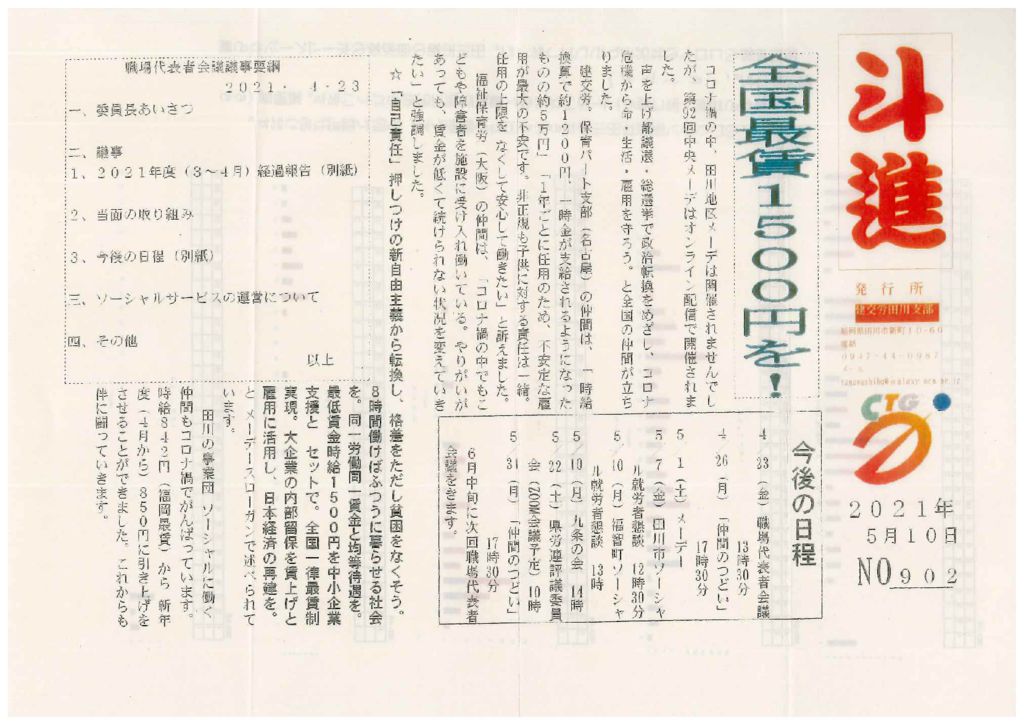 斗進
発行所
建交労田川支部
福岡県田川市新町10-60
電話
0947-44-0987
メール
CTG
2021年
5月10日
NO902
全国最賃1500円を!
コロナ禍の中、田川地区メーデは開催されませんでし
たが、第92回中央メーデはオンライン配信で開催されま
した。
声を上げ都議選・総選挙で政治転換をめざし、コロナ
危機から命・生活・雇用を守ろう。と全国の仲間が立ち
りました。
建交労、保育パート支部(名古屋)の仲間は、「時給
換算で約1200円、一時金が支給されるようになった
ものの約5万円」「1年ごとに任用のため、不安定な雇
用が最大の不安です。非正規も子供に対する責任は一緒。
任用の上限をなくして安心して働きたい」と訴えました。
福祉保育労(大阪)の仲間は、「コロナ禍の中でもこ
どもや障害者を施設に受け入れ働いている。やりがいが
あっても、賃金が低くて続けられない状況を変えていき
たい」と強調しました。
☆「自己責任」押しつけの新自由主義から転換し、格差をただし貧困をなくそう。
8時間働けばふつうに暮らせる社会
を。同一労働同一賃金と均等待遇を。
最低賃金時給1500円を中小企業
支援と セットで。全国一律最賃制
実現。大企業の内部留保を賃上げと
雇用に活用し、日本経済の再建を。
と メーデースローガンで述べられて
います。
田川の事業団 ソーシャルに働く
仲間もコロナ禍でがんばっています。
時給842円(福岡最賃)から 新年
度(4月から)850円に引き上げを
させることができました。これからも
伴に闘っていきます。
今後の日程
4/23(金)職場代表者会議
13時30分
4/26(月)「仲間のつどい」
17時30分
5/1(土)メーデー
5/7(金)田川市ソーシャ
ル就労者懇談 12時30分
5/10(月)福智町ソーシャ
ル就労者懇談 13時
5/10(月)九条の会 14時
5/22(土)県労連評議委員
会(ZOOM会議予定)10時
5/31(月)「仲間のつどい」
17時30分
6月中旬に次回職場代表者
会議をきます。
職場代表者会議議事要綱
2021.4.23
一、委員長あいさつ
二、議事
1、2021年度(3～4月)経過報告(別紙)
2、当面の取り組み
3、今後の日程(別紙)
三、ソーシャルサービスの運営について
四、その他
以上